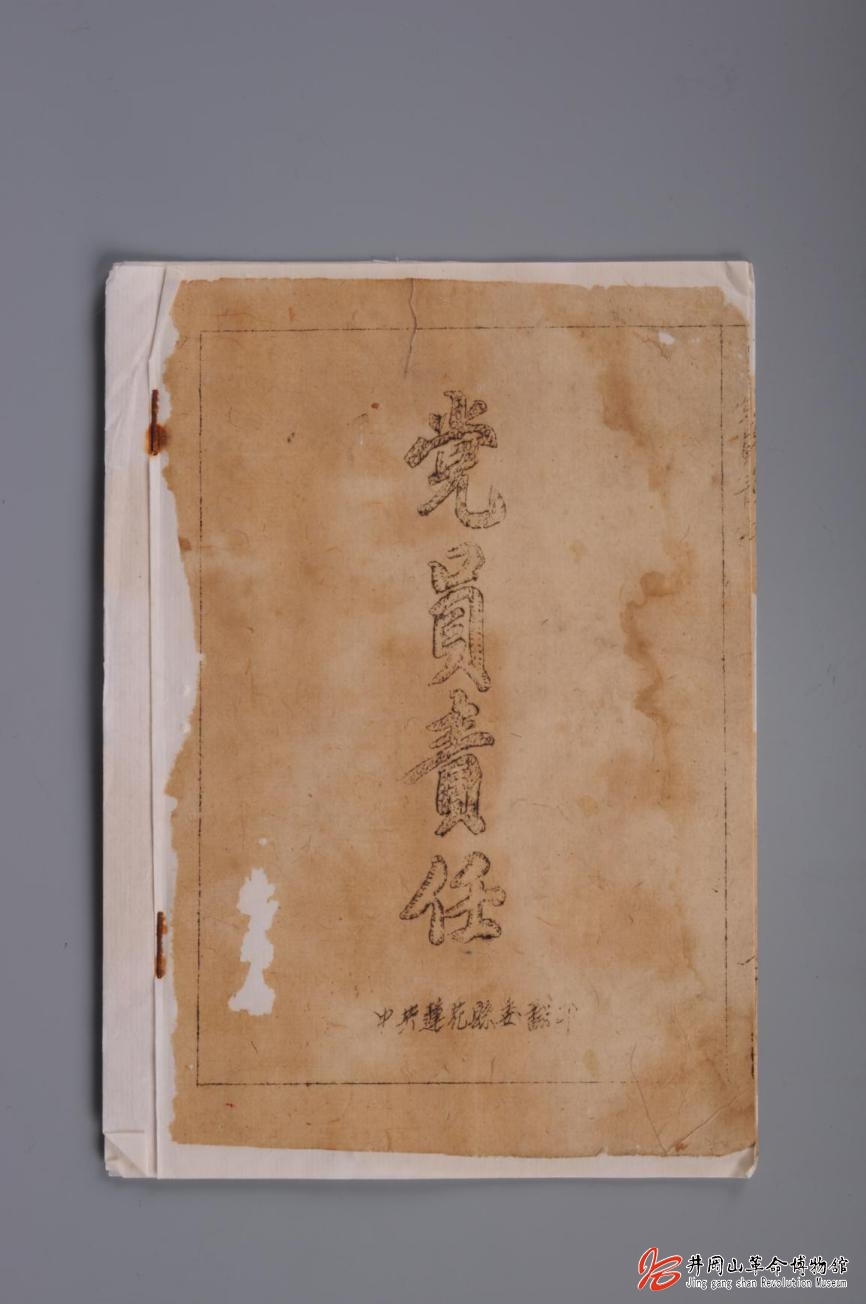 党員責任
中共蓮花縣委翻印
井冈山革命博物館
Jing gang shan Revolution Museum